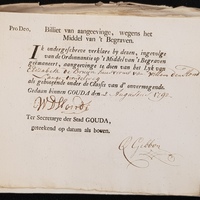 Pro Deo, Billiet van aangeevinge, wegens het
Middel van 't Begraven.
Ik ondergeschreve verklare by deezen, ingevolge
van de Ordonnantie op 't Middel van 't Begraven
geëmaneert, aangevinge te doen van het Lyk van
Elizabeth de Bruijn huisvrouw van Willem
als gehoorende onder de Classis van d' onvermogende.
Gedaan binnen GOUDA den 2 Augustus 1791
Ter Secretarye der Stad GOUDA,
geteekend op datum als boven.